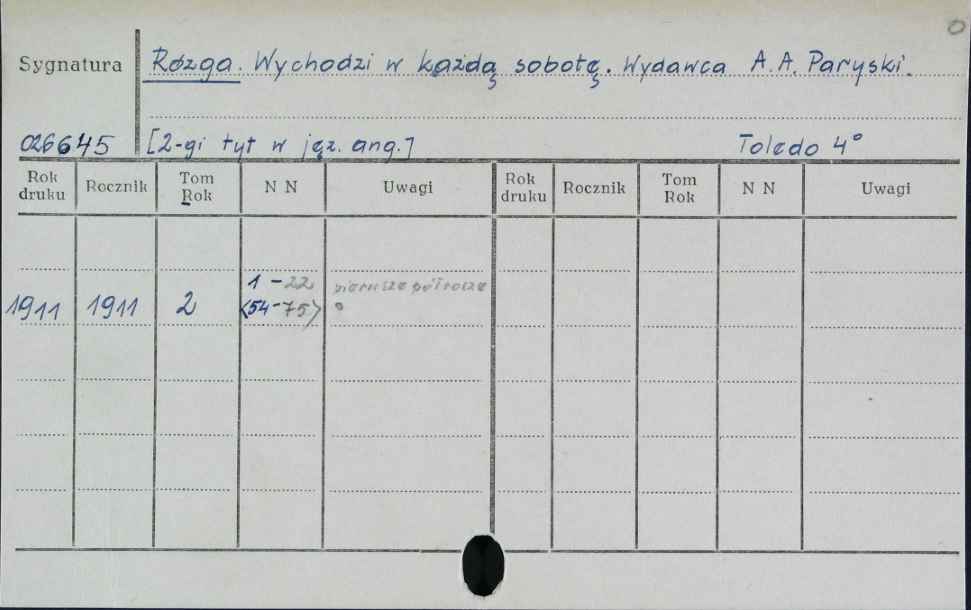 0
Sygnatura Rózga. Wychodzi w każdą sobotę. Wydawca A.A. Paryski.
026645 [2-gi tyt w jęz. ang.] Toledo 4°
Rok druku Rocznik Tom Rok N N Uwagi Rok druku Rocznik Tom Rok N N Uwagi
1 - 22 pierwsze półrocze
1911 1911 2 <54-75>